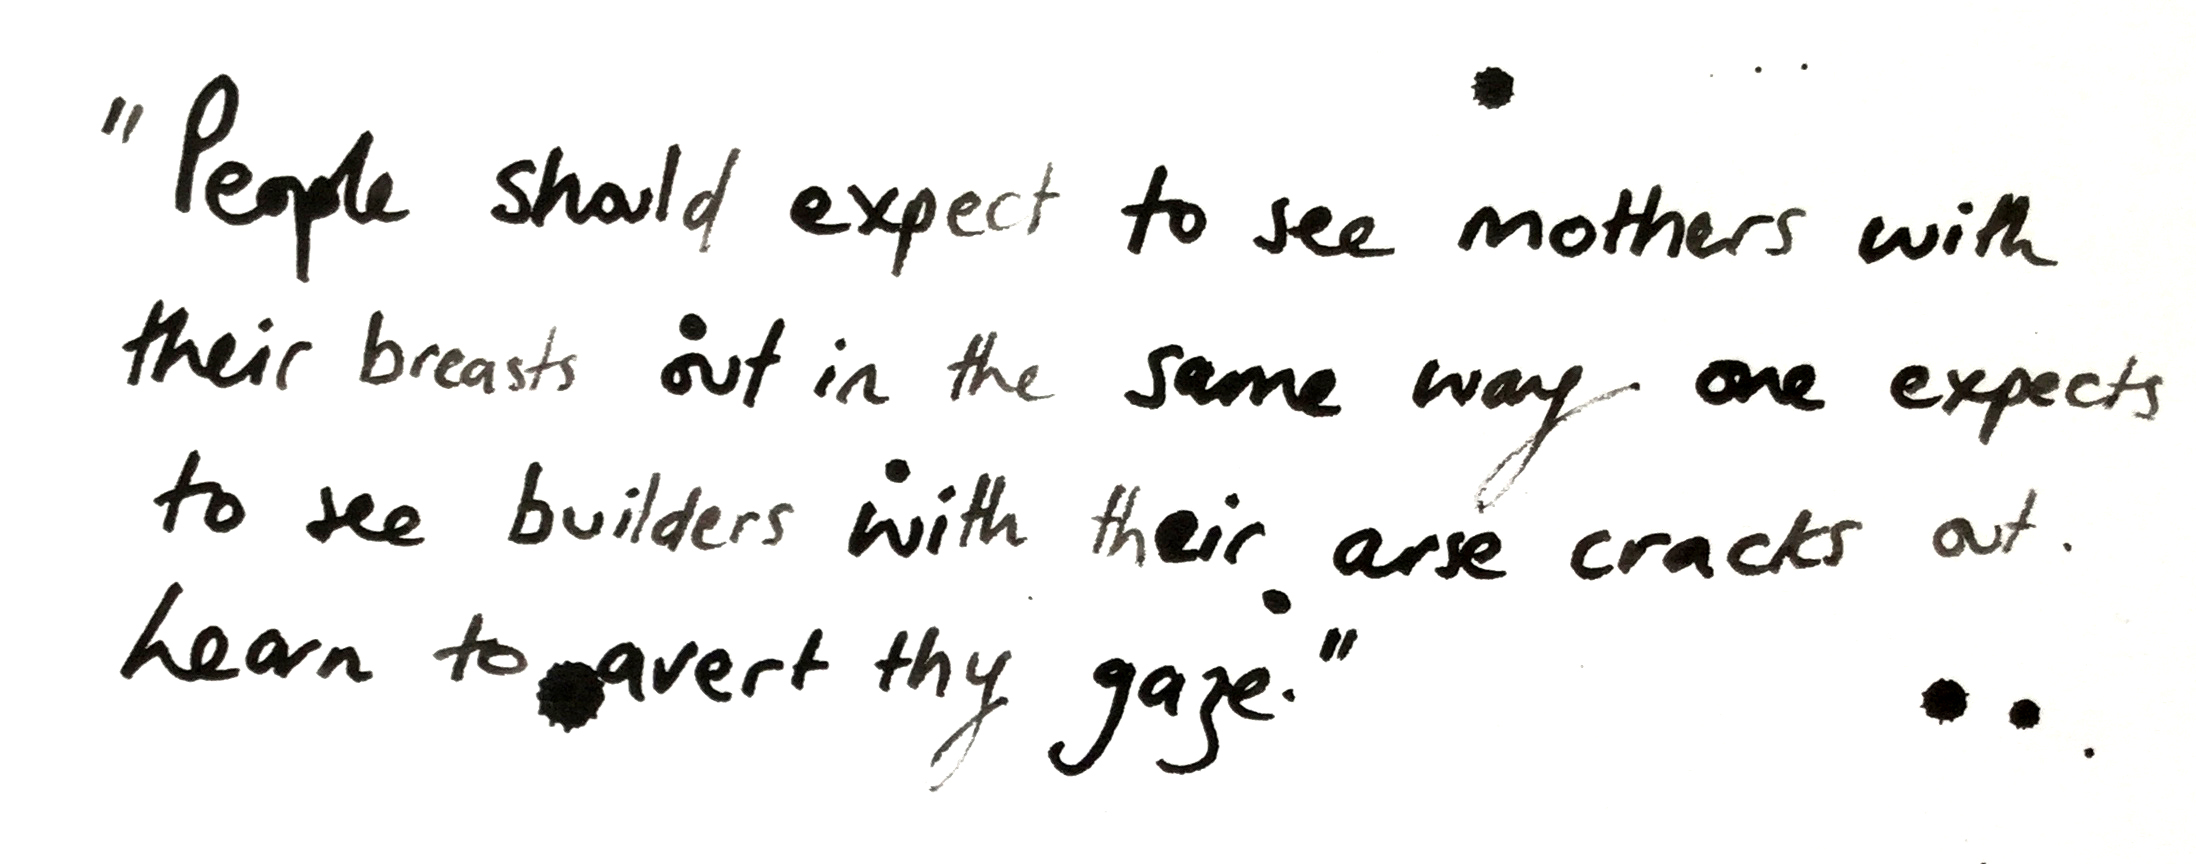 "People should expect to see mothers with
their breasts out in the same way one expects
to see builders with their arse cracks out.
Learn to avert thy gaze."